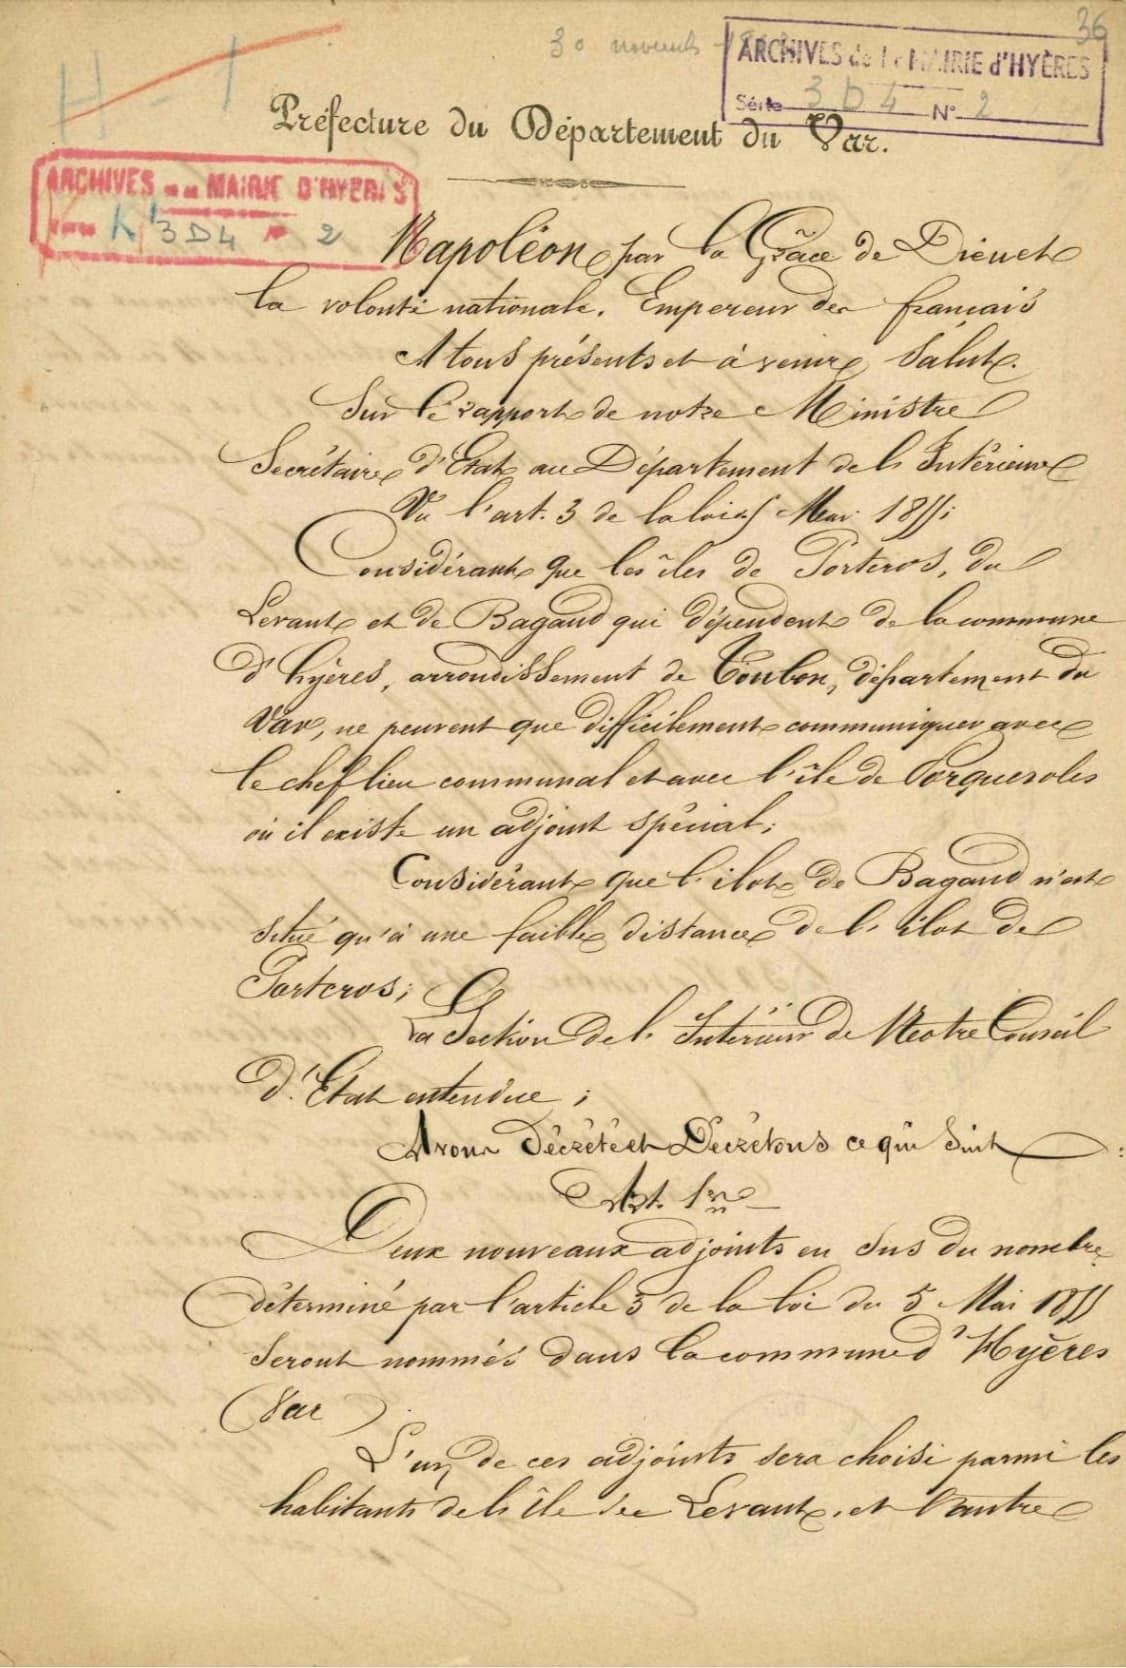 36
30 novembre
H - 1
ARCHIVES de la MAIRIE d'HYÈRES
Série 3D4 N° 2
Préfecture du Département du Var.
ARCHIVES DE LA MAIRIE D'HYERES
3D4 2
Napoléon par la Grâce de Dieu et
la volonté nationale, Empereur des français
A tous présents et à venir, Salut.
Sur le rapport de notre Ministre
Secrétaire d'Etat au Département de l'Intérieur
Vu l'art. 3 de la loi du 5 Mai 1855;
Considérant que les îles de Porteros, du
Levant et de Bagaud qui dépendent de la commune
d'hyères, arrondissement de Toulon, département du
Var, ne peuvent que difficilement communiquer avec
le chef lieu communal et avec l'île de Porquerolles
où il existe un adjoint spécial;
Considérant que l'ilot de Bagaud n'est
situé qu'à une faible distance de l'ilot de
Portcros;
La Section de l'Intérieur de Notre Conseil
d'Etat entendue;
Avons Décrété et Décrétons ce qui suit :
Art. 1er
Deux nouveaux adjoints en sus du nombre
déterminé par l'article 3 de la loi du 5 Mai 1855
seront nommés dans la commune d'Hyères
(Var)
L'un de ces adjoints sera choisi parmi les
habitants de l'île du Levant, et l'autre